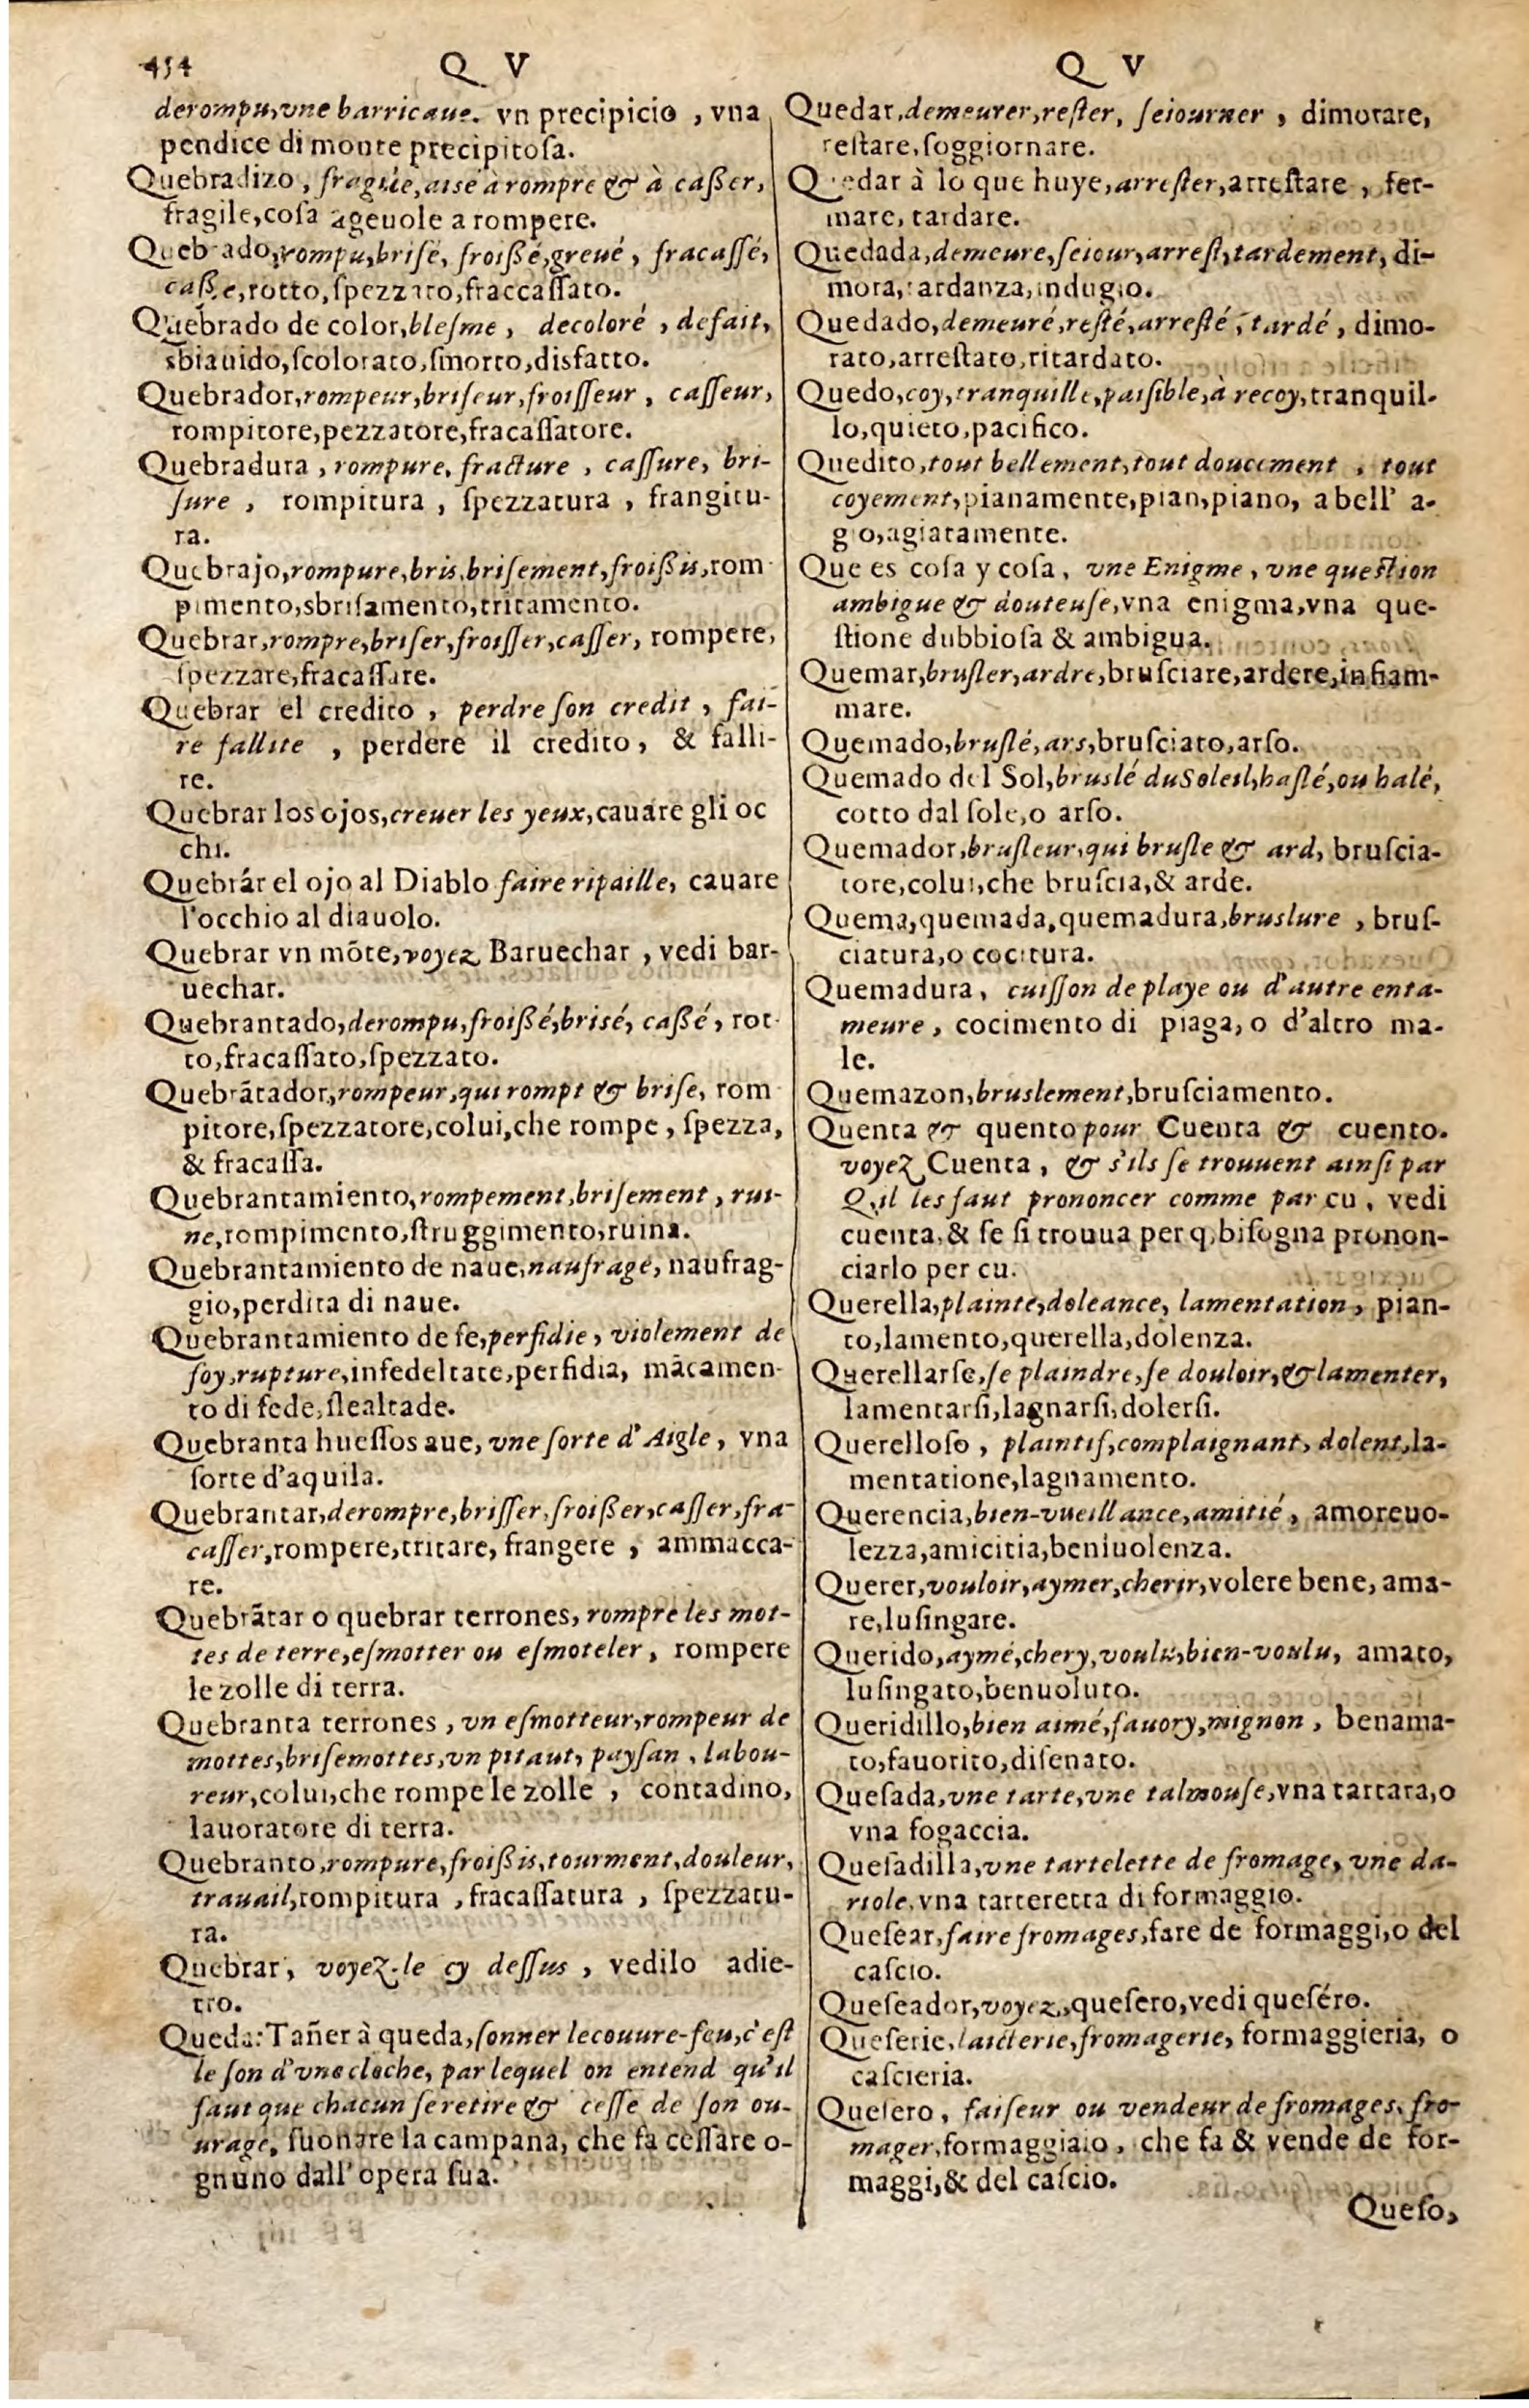 454
Q V
Q V
derompu, vne barricaue. vn precipicio, vna
pendice di monte precipitoſa.
Quebradizo, fragile, aisé à rompre & à caßer,
fragile, coſa ageuole a rompere.
Quebrado, rompu, briſé, froißé, greué, fracaſſé,
caßé, rotto, ſpezzato, fraccaſſato.
Quebrado de color, bleſme, decoloré, defait,
sbiauido, ſcolorato, ſmorto, disfatto.
Quebrador, rompeur, briſeur, froiſſeur, caſſeur,
rompitore, pezzatore, fracaſſatore.
Quebradura, rompure, fracture, caſſure, bri-
ſure, rompitura, ſpezzatura, frangitu-
ra.
Quebrajo, rompure, bris, briſement, froißis, rom
pimento, sbriſamento, tritamento.
Quebrar, rompre, briſer, froiſſer, caſſer, rompere,
ſpezzare, fracaſſare.
Quebrar el credito, perdre ſon credit, fai-
re fallite, perdere il credito, & falli-
re.
Quebrar los ojos, creuer les yeux, cauare gli oc
chi.
Quebrár el ojo al Diablo faire ripaille, cauare
l'occhio al diauolo.
Quebrar vn mõte, voyez Baruechar, vedi bar-
uechar.
Quebrantado, derompu, froißé, brisé, caßé, rot-
to, fracaſſato, ſpezzato.
Quebrãtador, rompeur, qui rompt & briſe, rom
pitore, ſpezzatore, colui, che rompe, ſpezza,
& fracaſſa.
Quebrantamiento, rompement, briſement, rui-
ne, rompimento, ſtruggimento, ruina.
Quebrantamiento de naue, naufrage, naufrag-
gio, perdita di naue.
Quebrantamiento de fe, perfidie, violement de
foy, rupture, infedeltate, perfidia, mãcamen-
to di fede, ſlealtade.
Quebranta hueſſos aue, vne ſorte d'Aigle, vna
ſorte d'aquila.
Quebrantar, derompre, briſſer, froißer, caſſer, fra-
caſſer, rompere, tritare, frangere, ammacca-
re.
Quebrãtar o quebrar terrones, rompre les mot-
tes de terre, eſmotter ou eſmoteler, rompere
le zolle di terra.
Quebranta terrones, vn eſmotteur, rompeur de
mottes, briſemottes, vn pitaut, payſan, labou-
reur, colui, che rompe le zolle, contadino,
lauoratore di terra.
Quebranto, rompure, froißis, tourment, douleur,
trauail, rompitura, fracaſſatura, ſpezzatu-
ra.
Quebrar, voyez-le cy deſſus, vedilo adie-
tro.
Queda: Tañer à queda, ſonner le couure-feu, c'eſt
le ſon d'vne cloche, par lequel on entend qu'il
faut que chacun ſe retire & ceſſe de ſon ou-
urage, ſuonare la campana, che fa ceſſare o-
gnuno dall'opera ſua.
Quedar, demeurer, reſter, ſeiourner, dimorare,
reſtare, ſoggiornare.
Quedar à lo que huye, arreſter, arreſtare, fer-
mare, tardare.
Quedada, demeure, ſeiour, arreſt, tardement, di-
mora, tardanza, indugio.
Quedado, demeuré, reſté, arreſté, tardé, dimo-
rato, arreſtato, ritardato.
Quedo, coy, tranquille, paiſible, à recoy, tranquil-
lo, quieto, pacifico.
Quedito, tout bellement, tout doucement, tout
coyement, pianamente, pian, piano, a bell' a-
gio, agiatamente.
Que es coſa y coſa, vne Enigme, vne queſtion
ambigue & douteuſe, vna enigma, vna que-
ſtione dubbioſa & ambigua.
Quemar, bruſler, ardre, bruſciare, ardere, infiam-
mare.
Quemado, bruſlé, ars, bruſciato, arſo.
Quemado del Sol, bruslé du Soleil, haſlé, ou halé,
cotto dal ſole, o arſo.
Quemador, bruſleur, qui bruſle & ard, bruſcia-
tore, colui, che bruſcia, & arde.
Quema, quemada, quemadura, bruslure, bruſ-
ciatura, o cocitura.
Quemadura, cuiſſon de playe ou d'autre enta-
meure, cocimento di piaga, o d'altro ma-
le.
Quemazon, bruslement, bruſciamento.
Quenta & quento pour Cuenta & cuento.
voyez Cuenta, & s'ils ſe trouuent ainſi par
Q, il les faut prononcer comme par cu, vedi
cuenta, & ſe ſi trouua per q, biſogna pronon-
ciarlo per cu.
Querella, plainte, doleance, lamentation, pian-
to, lamento, querella, dolenza.
Querellarſe, ſe plaindre, ſe douloir, & lamenter,
lamentarſi, lagnarſi, dolerſi.
Querelloſo, plaintif, complaignant, dolent, la-
mentatione, lagnamento.
Querencia, bien-vueillance, amitié, amoreuo-
lezza, amicitia, beniuolenza.
Querer, vouloir, aymer, cherir, volere bene, ama-
re, luſingare.
Querido, aymé, chery, voulu, bien-voulu, amato,
luſingato, benuoluto.
Queridillo, bien aimé, fauory, mignon, benama-
to, fauorito, diſenato.
Queſada, vne tarte, vne talmouſe, vna tartara, o
vna fogaccia.
Queſadilla, vne tartelette de fromage, vne da-
riole, vna tarteretta di formaggio.
Queſear, faire fromages, fare de formaggi, o del
caſcio.
Queſeador, voyez, queſero, vedi queſéro.
Queſerie, laicterie, fromagerie, formaggieria, o
caſcieria.
Queſero, faiſeur ou vendeur de fromages, fro-
mager, formaggiaio, che fa & vende de for-
maggi, & del caſcio.
Queſo,